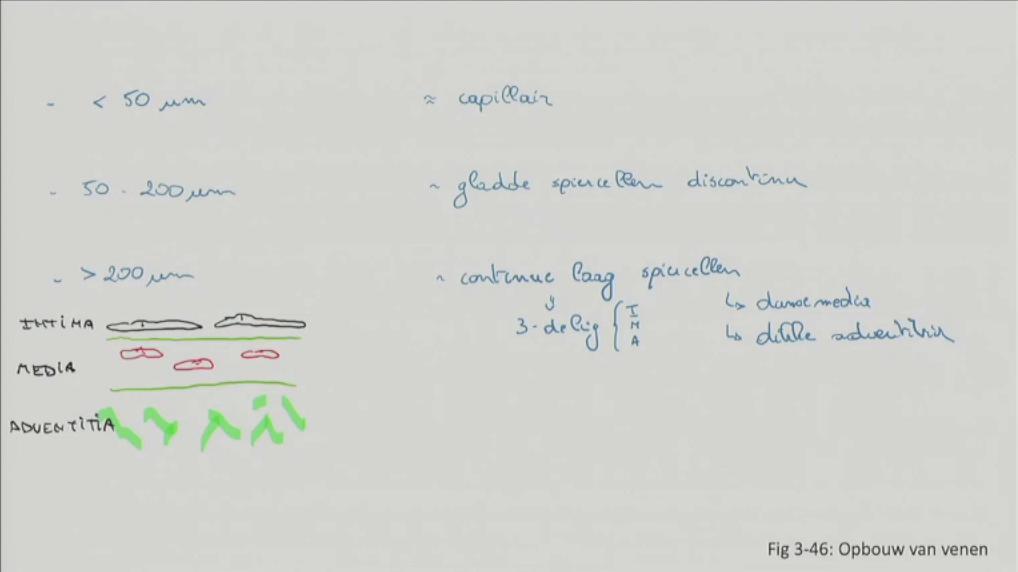 - < 50 µm ≈ capillair
- 50 - 200 µm ~ gladde spiercellen discontinu
- > 200 µm ~ continue laag spiercellen
↳ dunne media
3-delig { I M A
↳ dikke adventitia
INTIMA
MEDIA
ADVENTITIA
Fig 3-46: Opbouw van venen